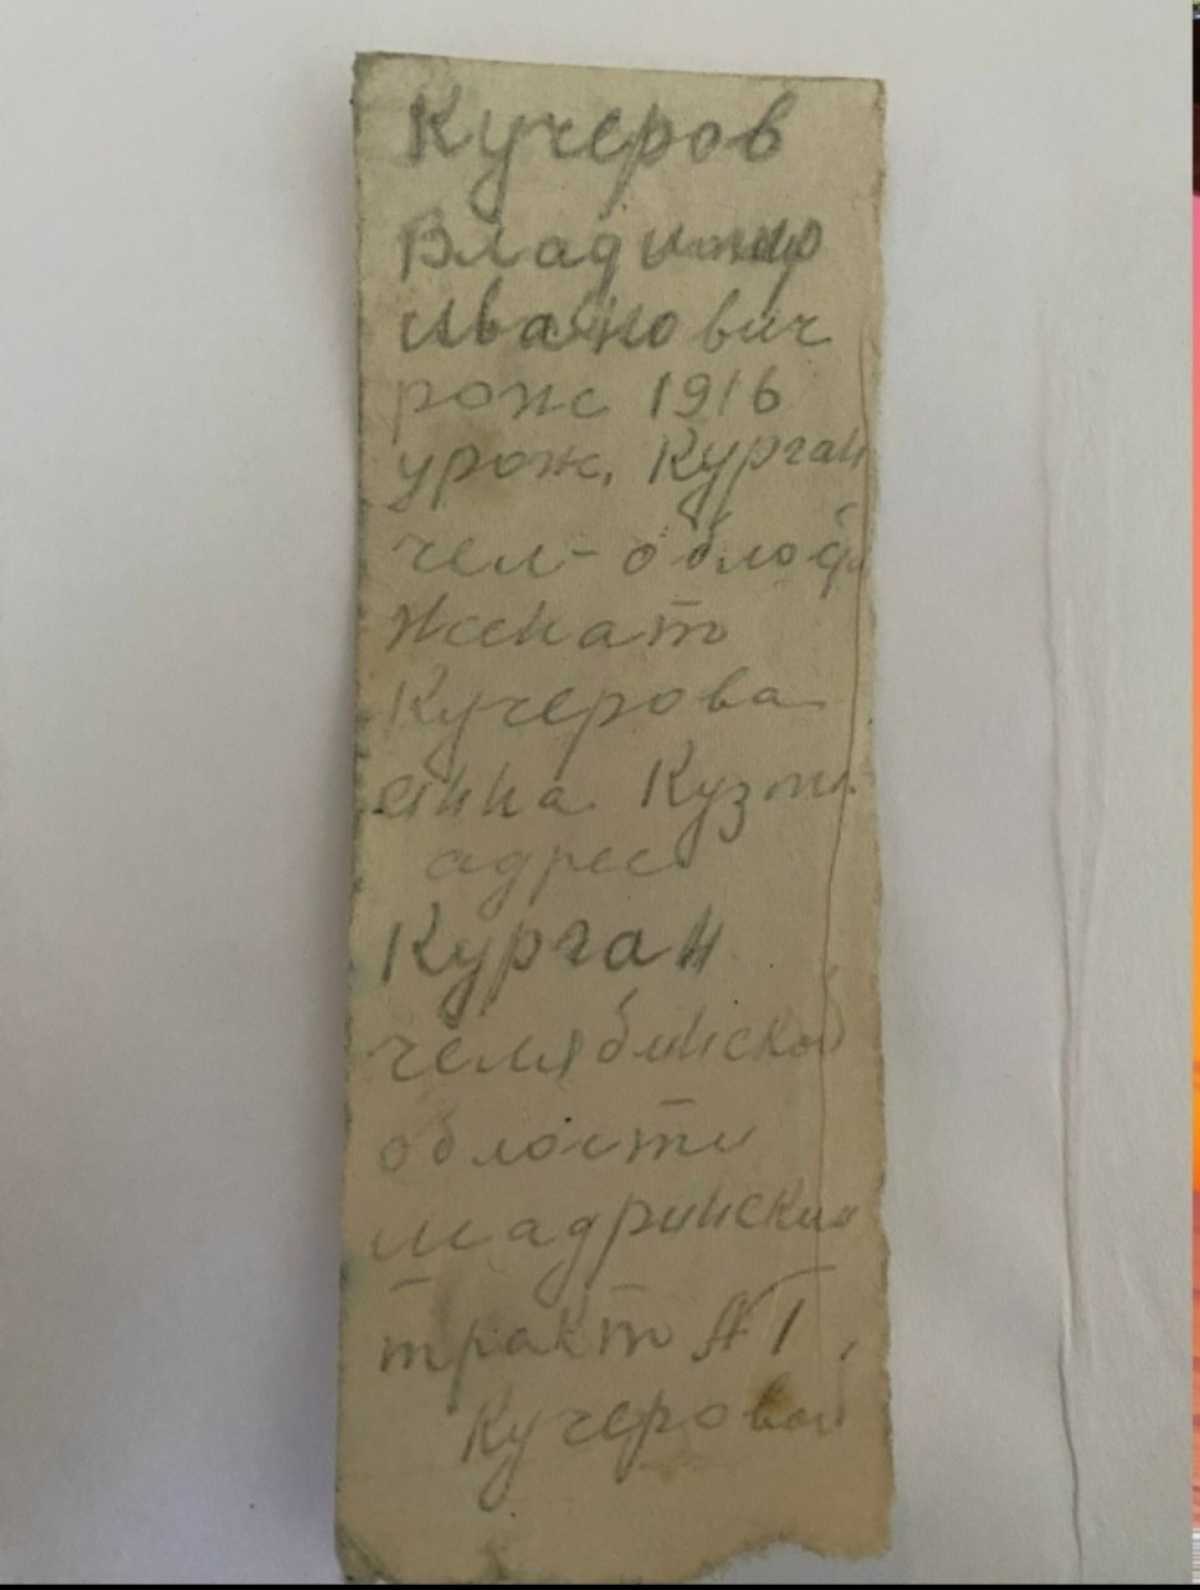 Кучеров
Владимир
Иванович
рожс 1916
урож. Курган
чел-облоф
Женат
Кучерова
Анна Кузм.
адрес
Курган
челябинской
области
шадринский
тракт №1,
Кучеровой